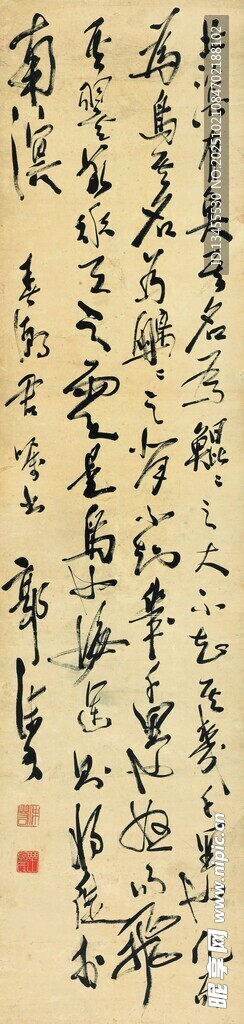 北溟有鱼其名为鲲鲲之大不知其几千里也化而
为鸟其名为鹏鹏之背不知其几千里也怒而飞
其翼若垂天之云是鸟也海运则将徙于
南溟
春潮君嘱书 郭沫若
ID:13455530 NO:20251021084702188102
昵享网
www.nipic.cn